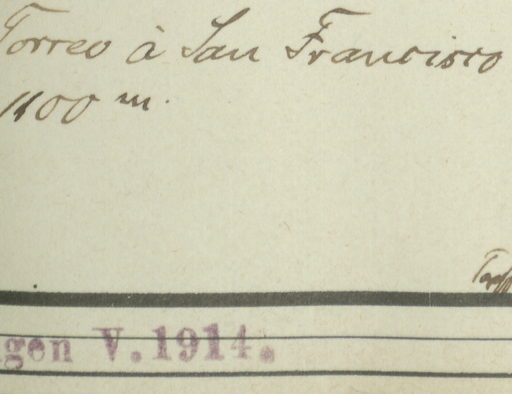 Torreo à San Francisco
1100 m.
gen V.1914.